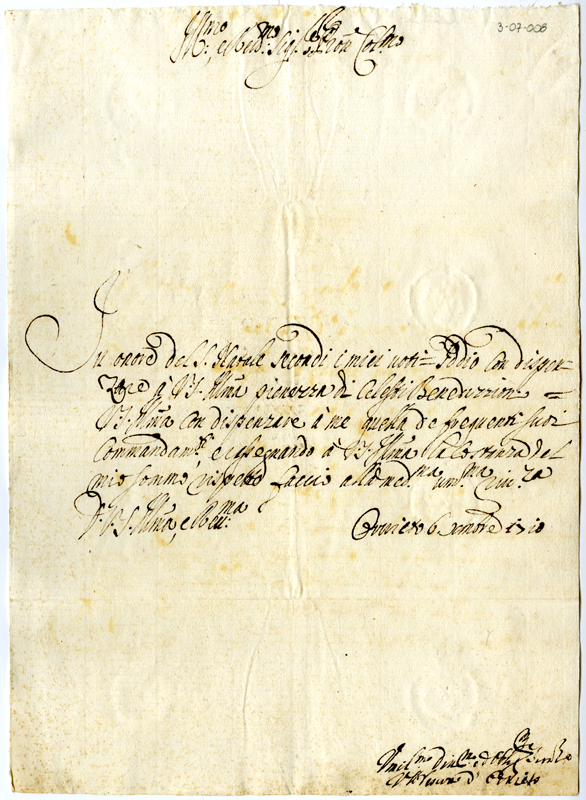 3-07-008
Ill.mo e Rev.mo Sig.re Pron Col.mo
In onore del S. Natale secondi i miei voti = Iddio con dispen-
zare à V.S. Illma pienezza di Celesti Benedizzioni =
V.S. Illma con dispenzare à me quella de frequenti suoi
Commandam.ti, e rassegnando à V.S. Illma la costanza del
mio sommo rispetto faccio alla med.ma um.ma riu.za
D. V.S. Illma, e Rev.ma
Orvieto 6 Xmbre 1710
Vmil.mo Diu.mo ed Obl.mo
Vescovo d'Orvieto